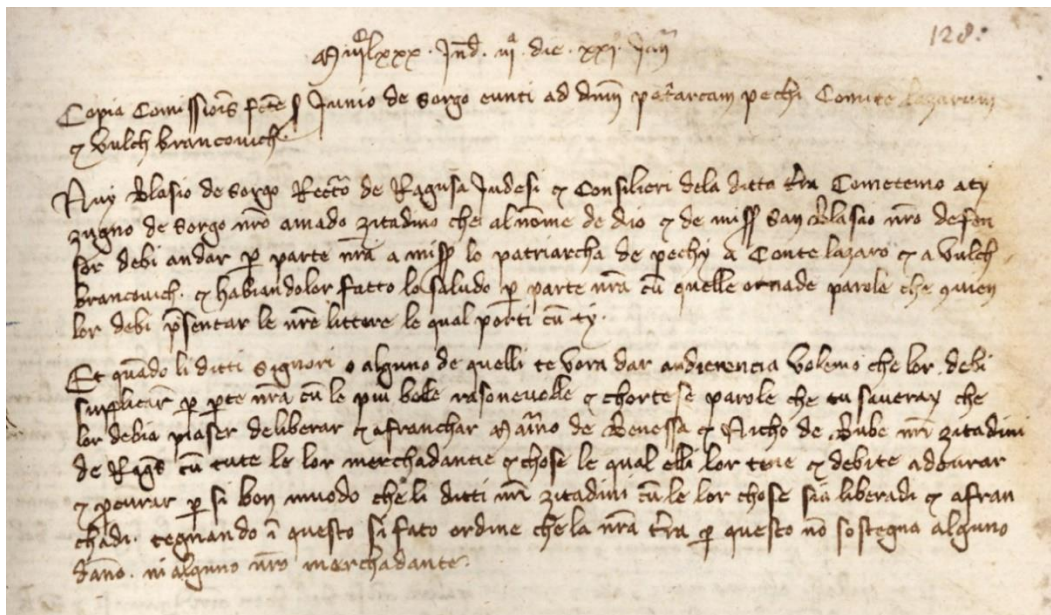 128.
Mᵒiijᶜlxxx. Ind. iijᵃ. die. xxjᵒ. Junij
Copia Comissiõis fc̃te s̃ Junio de Sorgo eunti ad dn̄m pat̃arcam pechi Comite lazarum
⁊ Vulch brancovich.
Nuy Blasio de Sorgo Rec̃to de Ragusa Judesi ⁊ Consilieri dela ditta t̃ra Cometemo a ty
zugno de Sorgo nr̃o amado zitadino che al nome de dio ⁊ de miss̃ san Blasio nr̃o defen
sor debi andar ꝑ parte nr̃a a miss̃ lo patriarcha de pechy a Conte lazaro ⁊ a Vulch
brancovich. ⁊ habiandolor fatto lo saludo ꝑ parte nr̃a cũ quelle ornade parole che ꝯuien
lor debi p̃sentar le nr̃e littere le qual porti cũ ty.
Et quãdo li ditti signori o alguno de quelli te vora dar audierencia volemo che lor debi
supplicar ꝑ ꝑte nr̃a cũ le piu belle rasoneuelle ⁊ chortese parole che tu saveray che
lor debia piaser deliberar ⁊ afranchar Mar̃no de Benessa ⁊ Nicho de Bube nr̃i zitadini
de Rag̃s cũ tute le lor merchadantie ⁊ chose le qual elli lor tene ⁊ debite adourar
⁊ pcurar ꝑ si bon muodo che li ditti nr̃i zitadini cũ le lor chose sia liberadi ⁊ afran
chadi. tegnando ĩ questo si fato ordine che la nr̃a t̃ra ꝑ questo nõ sostegna alguno
dãno. ni alguno nr̃o merchadante.